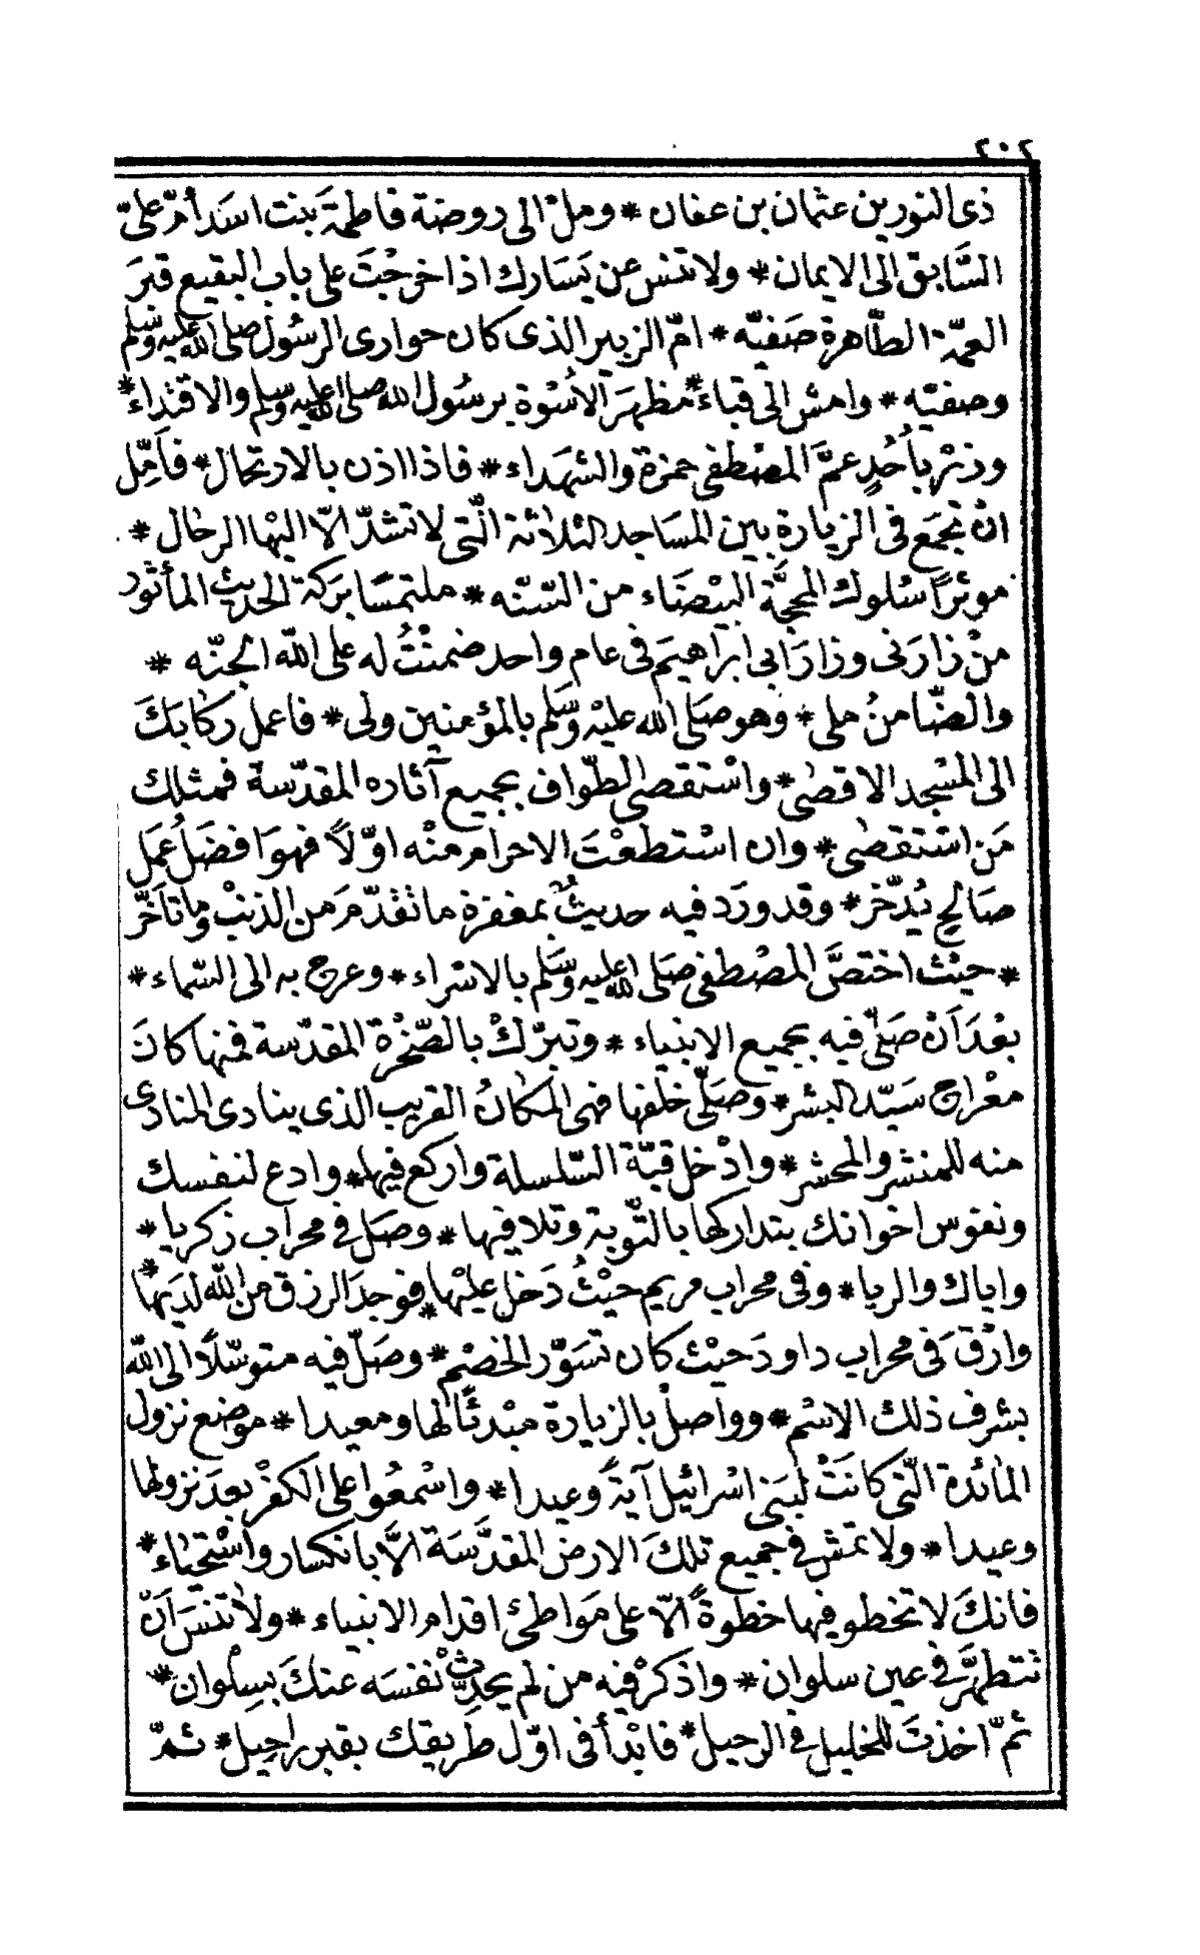 ٢٠٢
ذى النورين عثمان بن عفان * ومل الى روضة فاطمة بنت اسد أمّ علىّ
السَّابق الى الايمان * ولا تنس عن يَسَارك اذا خرجْتَ على باب البقيع قبرَ
العمّة الطّاهرة صَفيّه * امّ الزبير الذى كان حوارى الرسُول صلى الله عليه وسلم
وصفيّه * وامش الى قباء * مظهرَ الأسْوة برسُول الله صلى الله عليه وسلم والاقتداء *
وزرْ بأحُدٍ عمَّ المصْطفى حمزة والشهَداء * فاذا اذن بالارتحال * فأمّل
انْ تجمَع فى الزيارة بين المسَاجد الثلاثة الّتى لا تشدّ الّا اليْها الرحال *
موثرًا سُلوك المحجَّة البيْضَاء من السّنّه * ملتمسًا بَركة الحديث المأثور
منْ زارَنى وزارَ ابى ابرَاهيمَ فى عام واحد ضمنْتُ له على الله الجنّه *
والضّامنُ ملى * وهو صَلى الله عليْه وَسَلم بالمؤمنين ولى * فاعمل ركابَكَ
الى المسْجد الاقصٰى * واسْتقصى الطّواف بجميع آثاره المقدّسة فمثلك
مَن استقصٰى * وان اسْتطعْتَ الاحرام منْه اوّلًا فهوَ افضَلُ عمَل
صَالحٍ يُدّخر * وقد ورَد فيه حديثٌ بمغفرة ما تقدّمَ مَن الذنْب وما تأخّر
* حيْث اختصَّ المصْطفى صَلى الله عليه وسَلم بالاسْراء * وعرج به الى السّماء *
بعْدَ اَنْ صَلّى فيه بجميع الانبياء * وتبرّكْ بالصّخْرة المقدّسة فمنها كانَ
معْراج سَيّد البشر * وصَلّى خلفها فهى المكانُ القريب الذى ينادى المنادى
منه للمنشر والمحشر * وادْخل قبّة السّلسلة واركع فيها * وادع لنفسك
ونفوس اخوانك بتداركها بالتّوبة وتلافيها * وصَل فى محراب زكريا *
واياك والريا * وفى محراب مريم حيْثُ دَخل عليْها * فوجدَ الرزق من الله لديَها *
وارْقَ فى محراب داودَ حيْث كان تسَوّر الخصْم * وصَلّ فيه متوسّلًا الى الله
بشرف ذلك الاسْم * وواصلْ بالزيارة مبْدئًا لها ومعيدا * موضع نزول
المائدة الّتى كانَتْ لبَنى اسْرائيل آيَةً وعيدا * واسْمعُوا على الكفْر بعدَ نزولها
وعيدا * ولا تمش فى جميع تلكَ الارض المقدَّسَة الَّا بانكسار واسْتحيَاء *
فانكَ لا تخطو فيها خطوةً الّا على مَواطئ اقدام الانبياء * ولا تنسَ اَنْ
تتطهَّر فى عين سلوان * واذكرْ فيه من لم يحدّث نفسَه عنكَ بسِلْوان *
ثمّ اخذتَ للخليل فى الرحيل * فابْدأ فى اوّل طريقك بقبر راحِيل * ثمّ